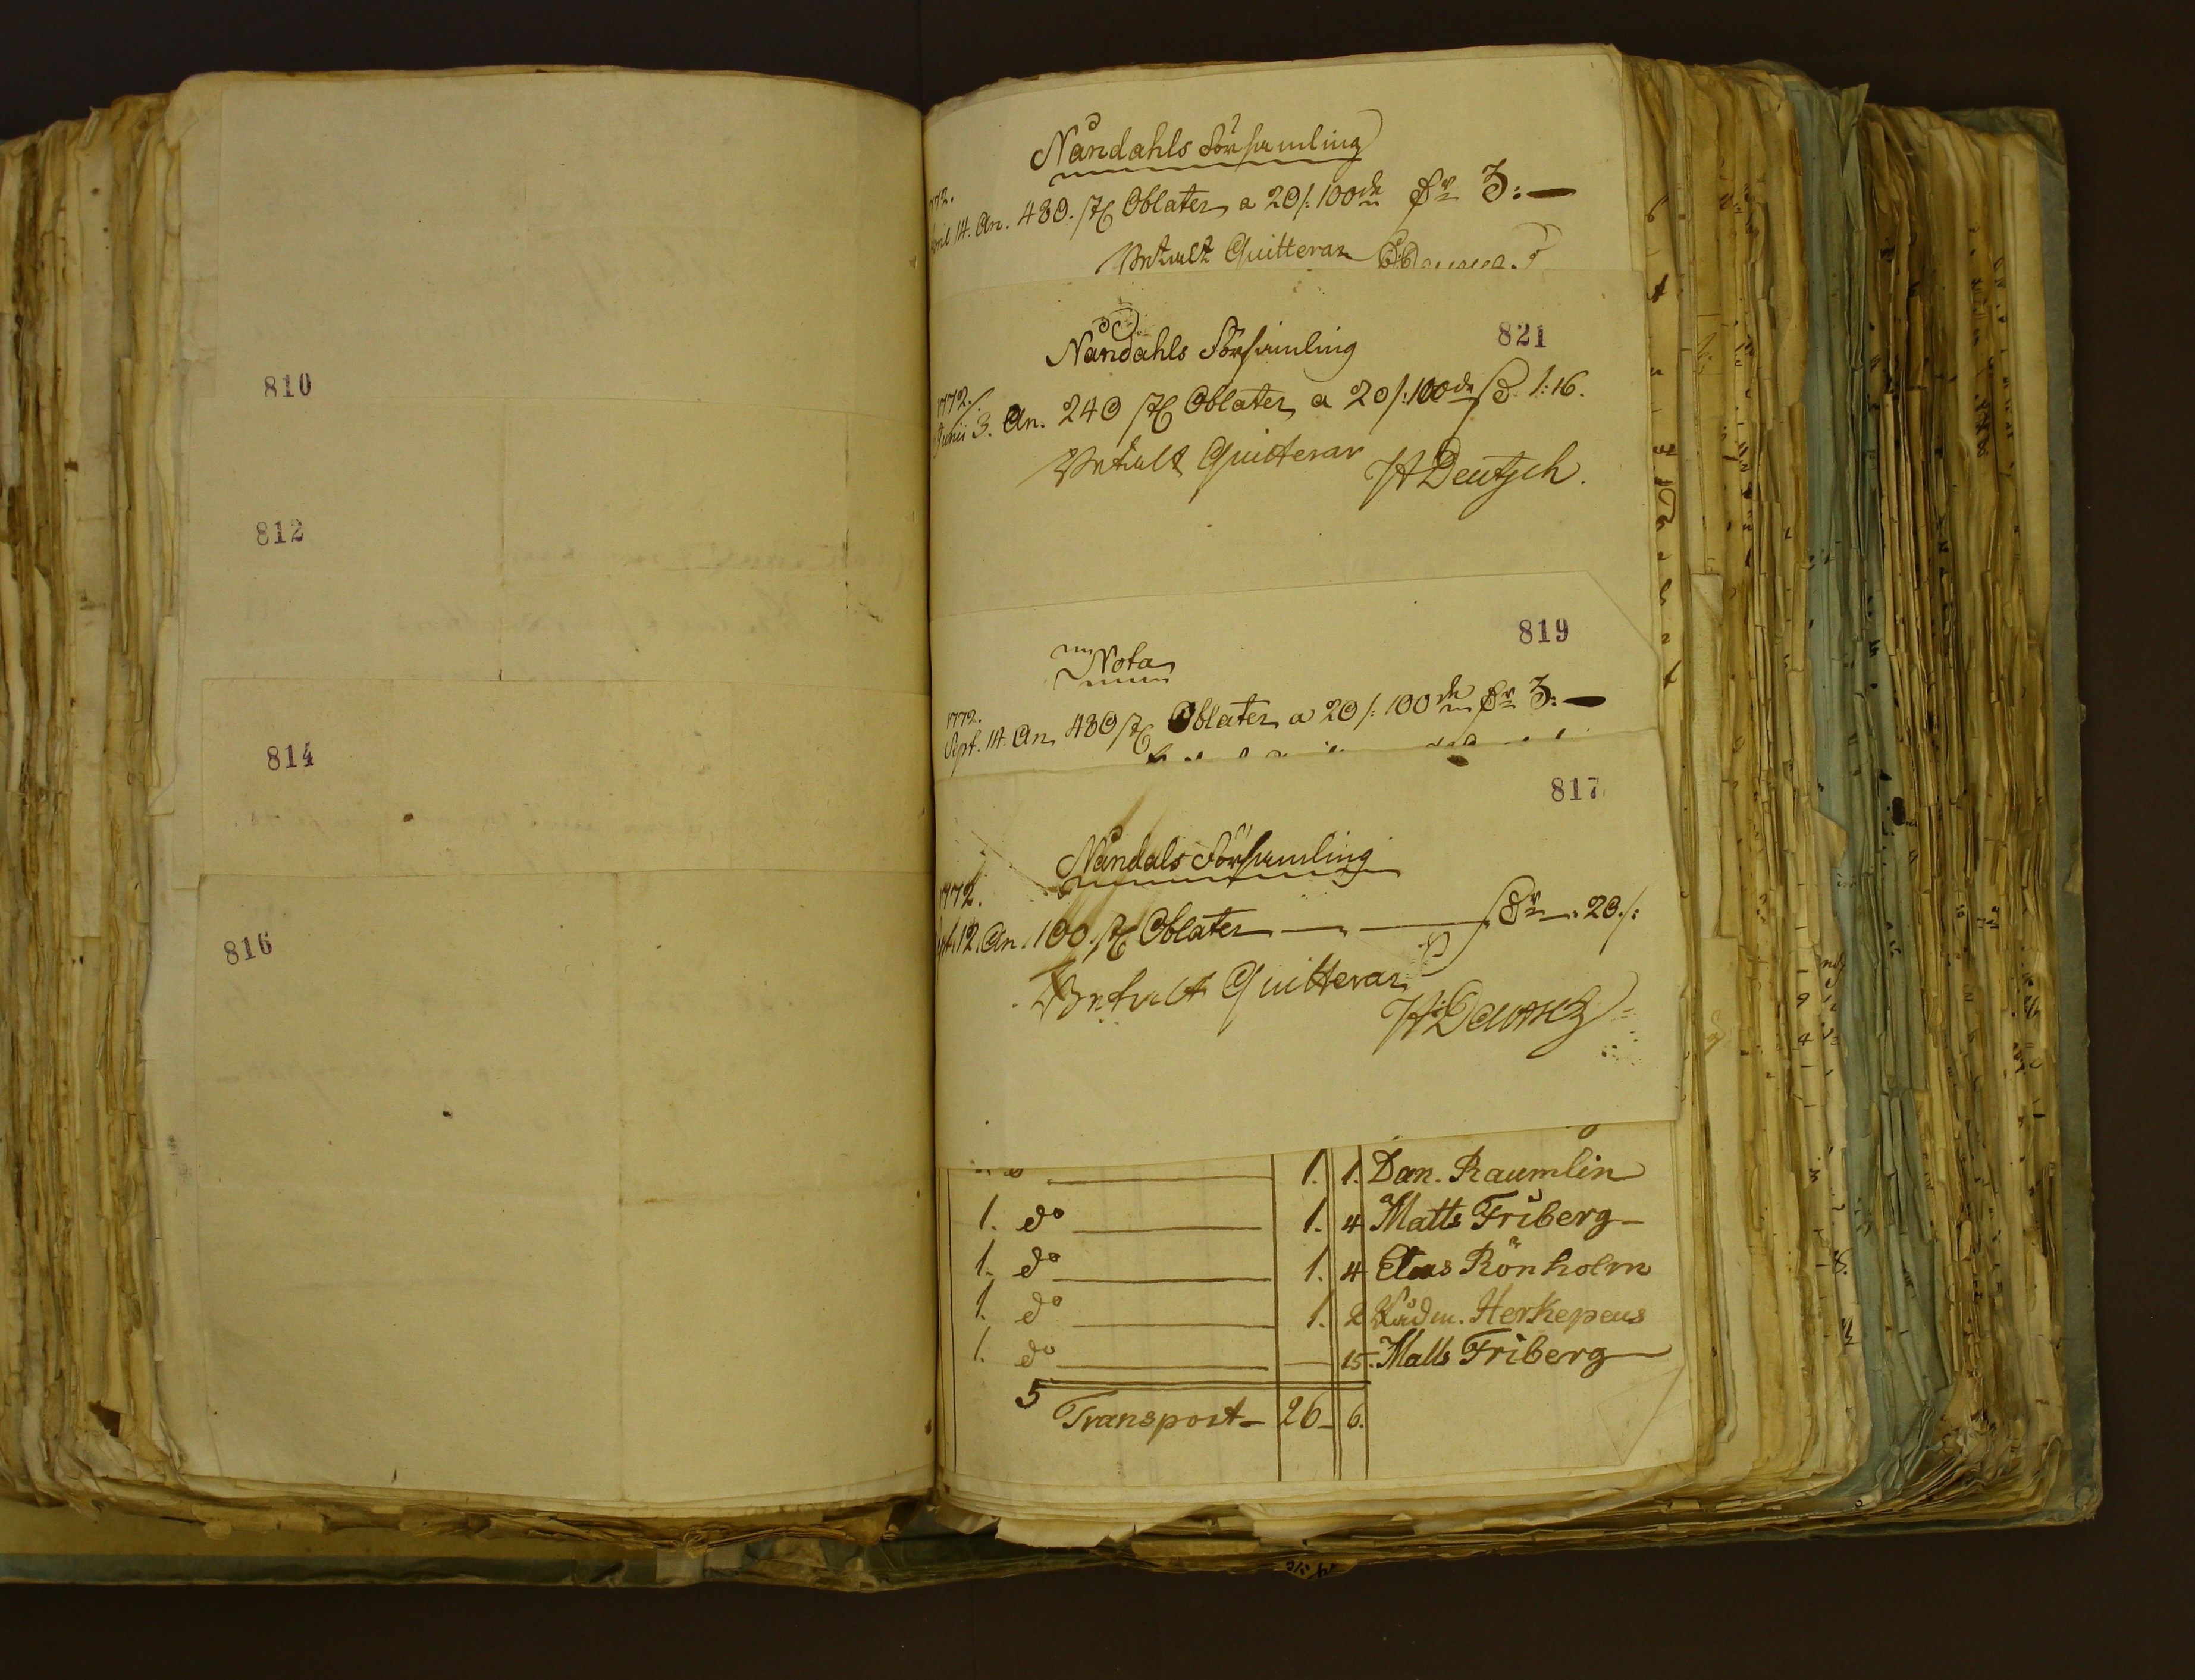 810
812
814
816
Nåndahls Församling
1772.
April 14. An. 480. st Oblater a 20/: 100de Dr 3:—
Betalt Quitteras
Nåndahls Församling
821
1772.
Junii 3. An. 240 st Oblater a 20/: 100de Sr 1:16.
Betalt Quitterar
HDeutsch.
819
Nota
1772.
Sept. 14. An 480 st Oblater a 20/: 100de Dr 3:—
817
Nåndals Församling
1772.
12. An. 100. st Oblater — Sr — 20./:
Betalt Quitteras
1. 1. Dan. Raumlin
1. do 1. 4 Matts Friberg
1. do 1. 4 Rönholm
1. do 1. 2 Rådm. Herkepeus
1. do — 15. Matts Friberg
5
Transport 26 6.